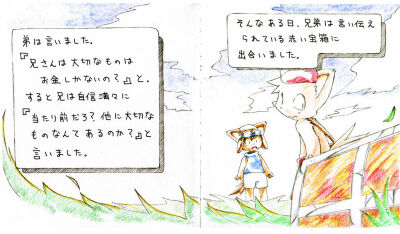 弟は言いました。
『兄さんは大切なものは
お金しかないの？』と。
すると兄は自信満々に
『当たり前だろ？他に大切な
ものなんてあるのか？』と
言いました。
そんなある日、兄弟は言い伝え
られている赤い宝箱に
出会いました。